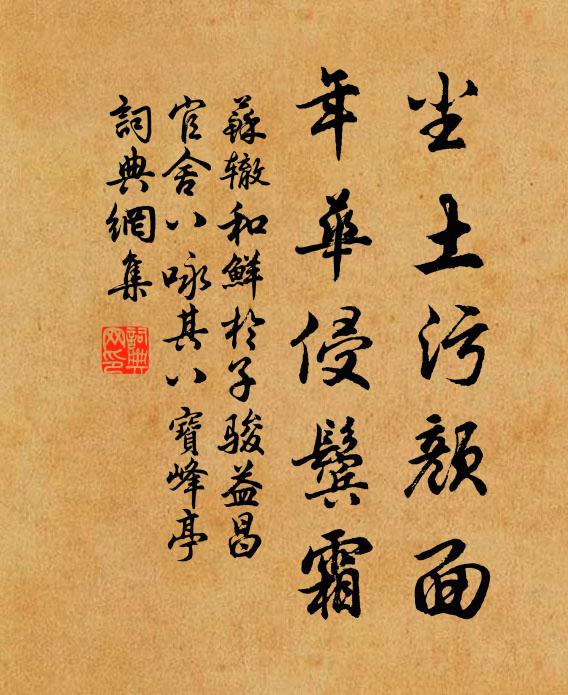 尘土污颜面
年华侵鬓霜
蘇辙和鮮於子骏益昌
官舍八咏其八寶峰亭
詞典網集
詞典
网印